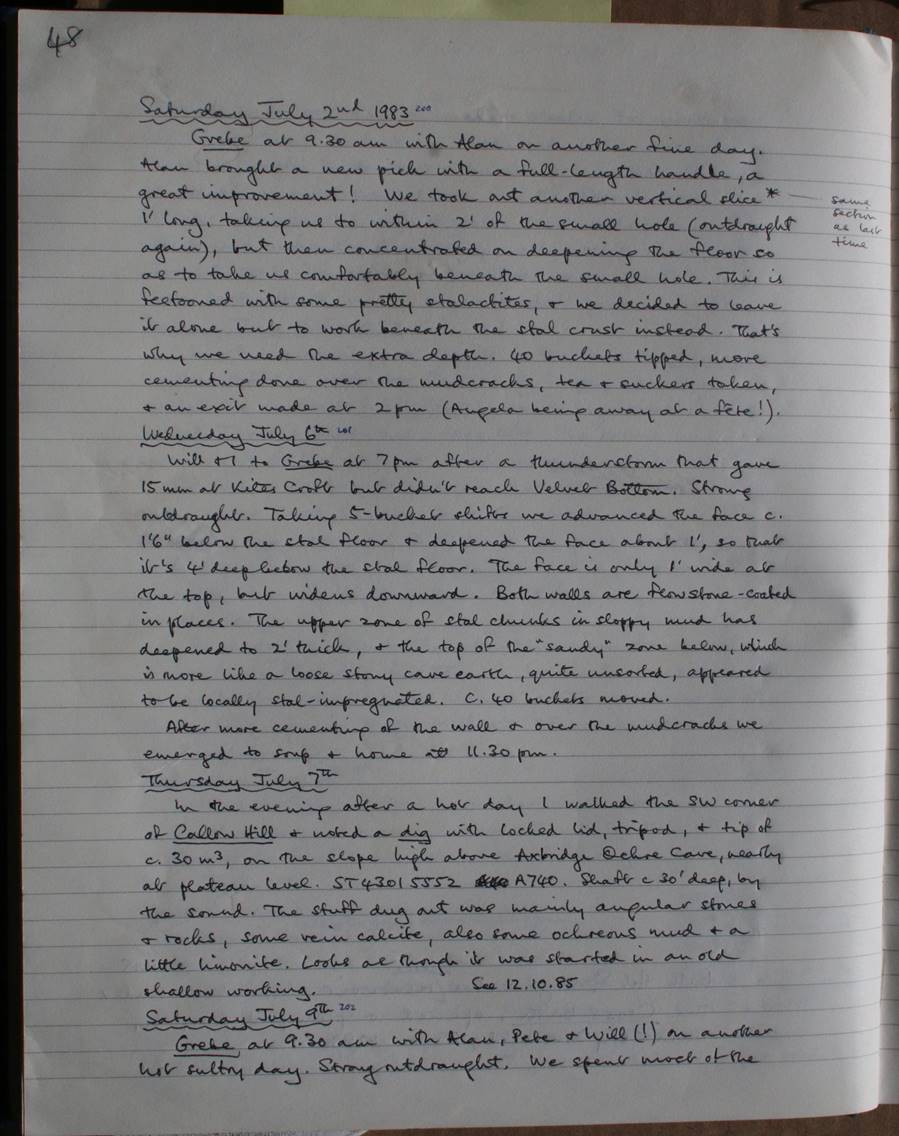 48
Saturday July 2nd 1983 200
Grebe at 9.30 am with Alan on another fine day.
Alan brought a new pick with a full-length handle, a
great improvement! We took out another vertical slice*
1' long, taking us to within 2' of the small hole (outdraught
again), but then concentrated on deepening the floor so
as to take us comfortably beneath the small hole. This is
festooned with some pretty stalactites, & we decided to leave
it alone but to work beneath the stal crust instead. That's
why we need the extra depth. 40 buckets tipped, more
cementing done over the mudcracks, tea & suckers taken,
& an exit made at 2 pm (Angela being away at a fête!).
same
section
as last
time
Wednesday July 6th 201
Will & I to Grebe at 7 pm after a thunderstorm that gave
15 mm at Kites Croft but didn't reach Velvet Bottom. Strong
outdraught. Taking 5-bucket shifts we advanced the face c.
1'6" below the stal floor & deepened the face about 1', so that
it's 4' deep below the stal floor. The face is only 1' wide at
the top, but widens downward. Both walls are flowstone-coated
in places. The upper zone of stal chunks in sloppy mud has
deepened to 2' thick, & the top of the "sandy" zone below, which
is more like a loose stony cave earth, quite unsorted, appeared
to be locally stal-impregnated. C. 40 buckets moved.
After more cementing of the wall & over the mudcracks we
emerged to soup & home at 11.30 pm.
Thursday July 7th
In the evening after a hot day I walked the SW corner
of Callow Hill & noted a dig with locked lid, tripod, & tip of
c. 30 m³, on the slope high above Axbridge Ochre Cave, nearly
at plateau level. ST43015552 A740. Shaft c 30' deep, by
the sound. The stuff dug out was mainly angular stones
& rocks, some vein calcite, also some ochreous mud & a
little limonite. Looks as though it was started in an old
shallow working. See 12.10.85
Saturday July 9th 202
Grebe, at 9.30 am with Alan, Pete & Will (!) on another
hot sultry day. Strong outdraught. We spent most of the